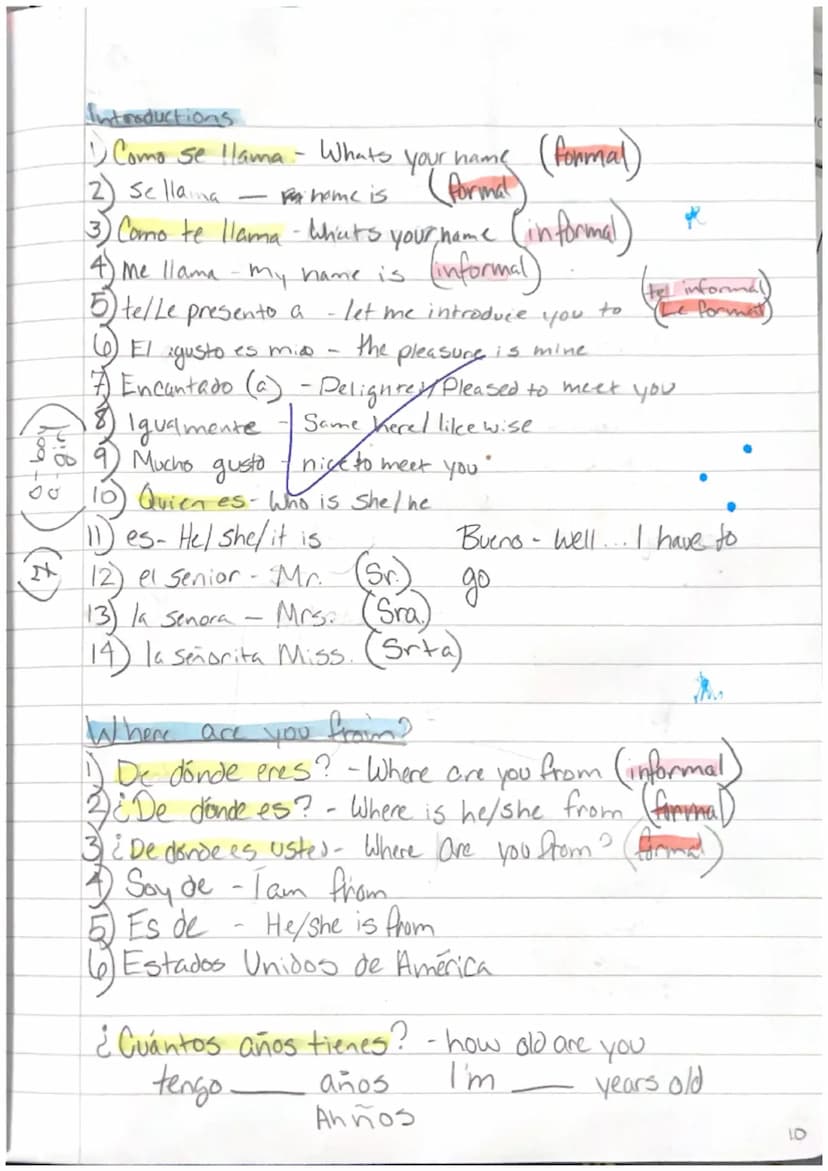 Introductions
1) Como se llama - Whats your name (formal)
2) se llama — name is (formal)
3) Como te llama - Whats your name (informal)
4) Me llama - my name is (informal)
5) te/Le presento a - let me introduce you to (te informal)
(Le formal)
6) El gusto es mio - the pleasure is mine
7) Encantado (a) - /Pleased to meet you
8) Igualmente - Same here/likewise
9) Mucho gusto - nice to meet you
10) Quien es - Who is she/he
11) es - He/she/it is
Bueno - Well... I have to
go
12) el senior - Mr. (Sr.)
13) la senora - Mrs. (Sra.)
14) la señorita Miss. (Srta)
Where are you from?
1) De dónde eres? - Where are you from (informal)
2) ¿De dónde es? - Where is he/she from (formal)
3) ¿De donde es usted - Where Are you from? (formal)
4) Soy de - I am from
5) Es de - He/she is from
6) Estados Unidos de América
¿Cuántos años tienes? - how old are you
tengo ____ años I'm ____ years old
Ahños
10